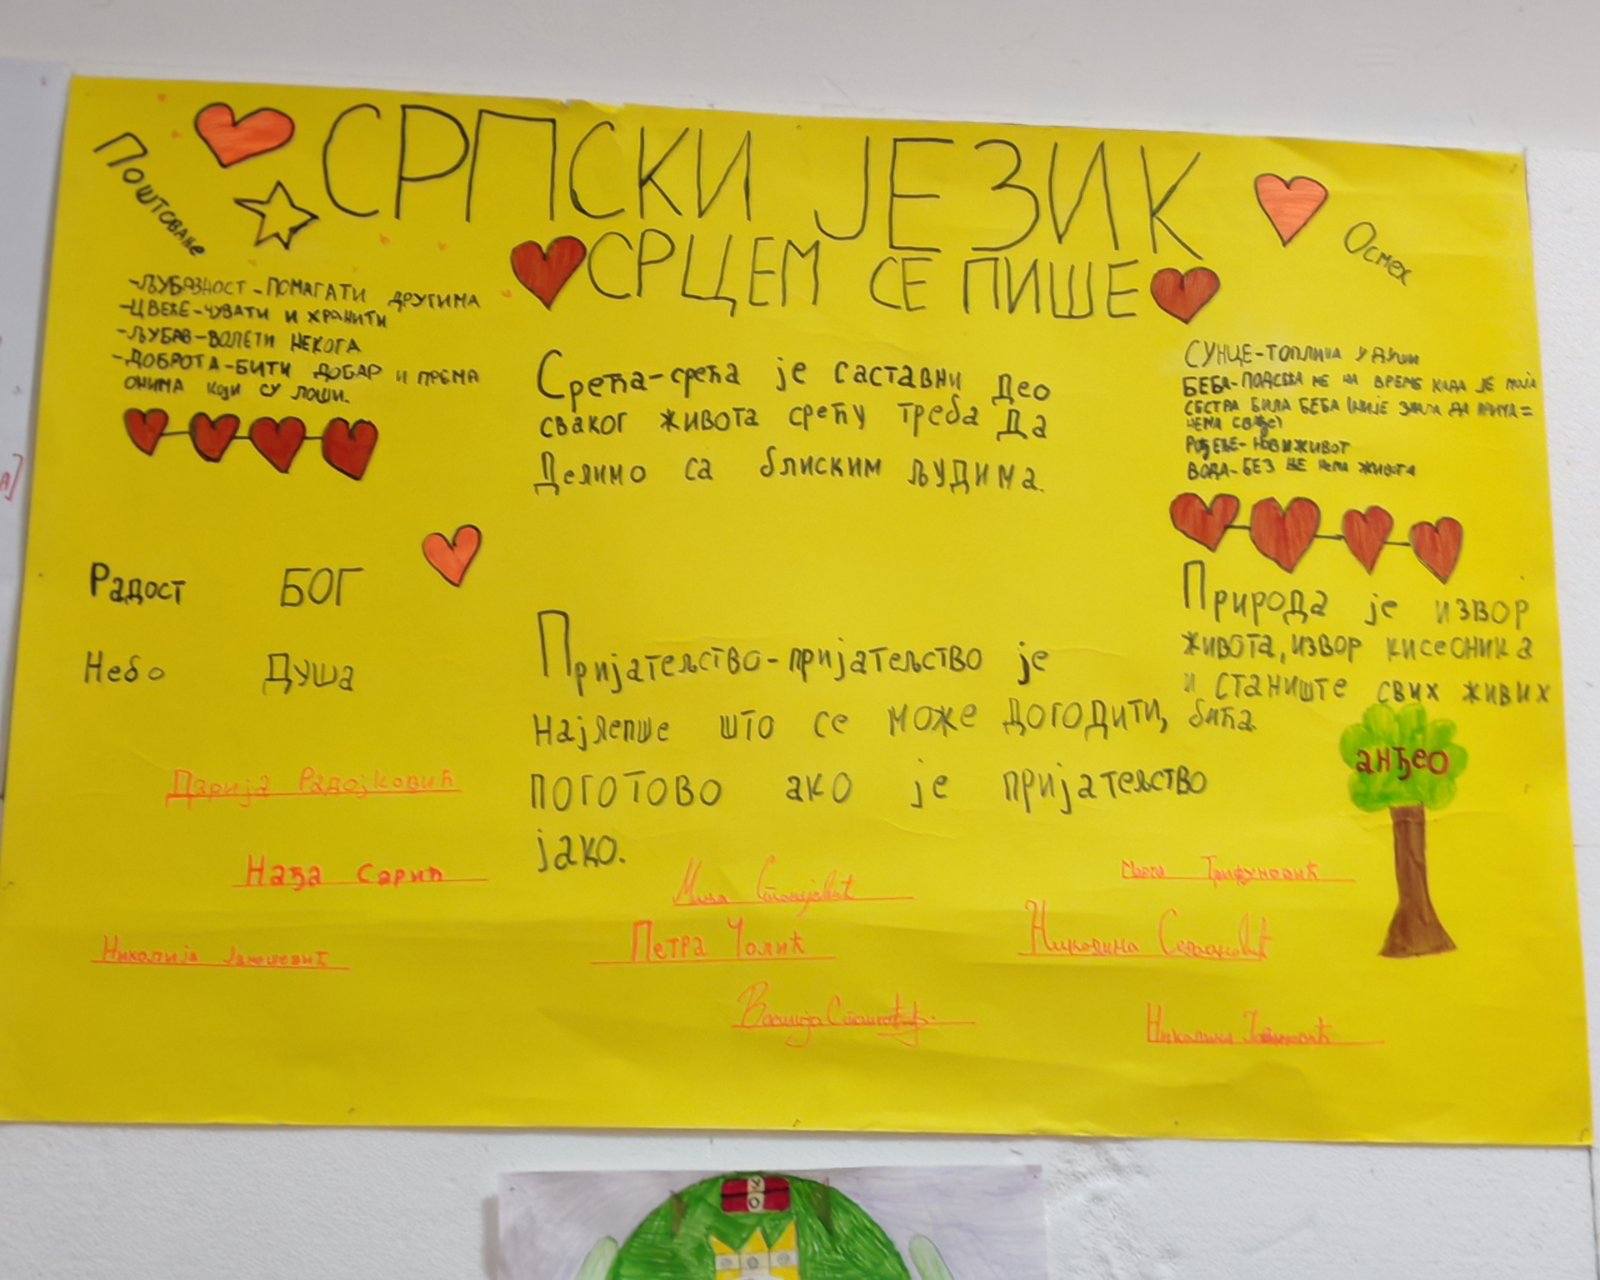 СРПСКИ ЈЕЗИК
СРЦЕМ СЕ ПИШЕ
Поштовање
Осмех
-ЉУБАЗНОСТ-ПОМАГАТИ ДРУГИМА
-ЦВЕЋЕ-ЧУВАТИ И ХРАНИТИ
-ЉУБАВ-ВОЛЕТИ НЕКОГА
-ДОБРОТА-БИТИ ДОБАР И ПРЕМА
ОНИМА КОЈИ СУ ЛОШИ.
Срећа-срећа је саставни део
сваког живота срећу треба да
Делимо са блиским људима.
СУНЦЕ-ТОПЛИНА У ДУШИ
БЕБА-ПОДСЕЋА МЕ НА ВРЕМЕ КАДА ЈЕ МОЈА
СЕСТРА БИЛА БЕБА (НИЈЕ ЗНАЛА ДА ПРИЧА=
НЕМА СВАЂЕ)
РОЂЕЊЕ-НОВИ ЖИВОТ
ВОДА-БЕЗ ЊЕ НЕМА ЖИВОТА
Радост БОГ
Небо Душа
Пријатељство-пријатељство је
најлепше што се може догодити,
поготово ако је пријатељство
јако.
Природа је извор
живота, извор кисеоника
и станиште свих живих
бића.
анђео
Дарија Радојковић
Нађа Сарић
Николија
Петра Чолић
Трифуновић
Василија